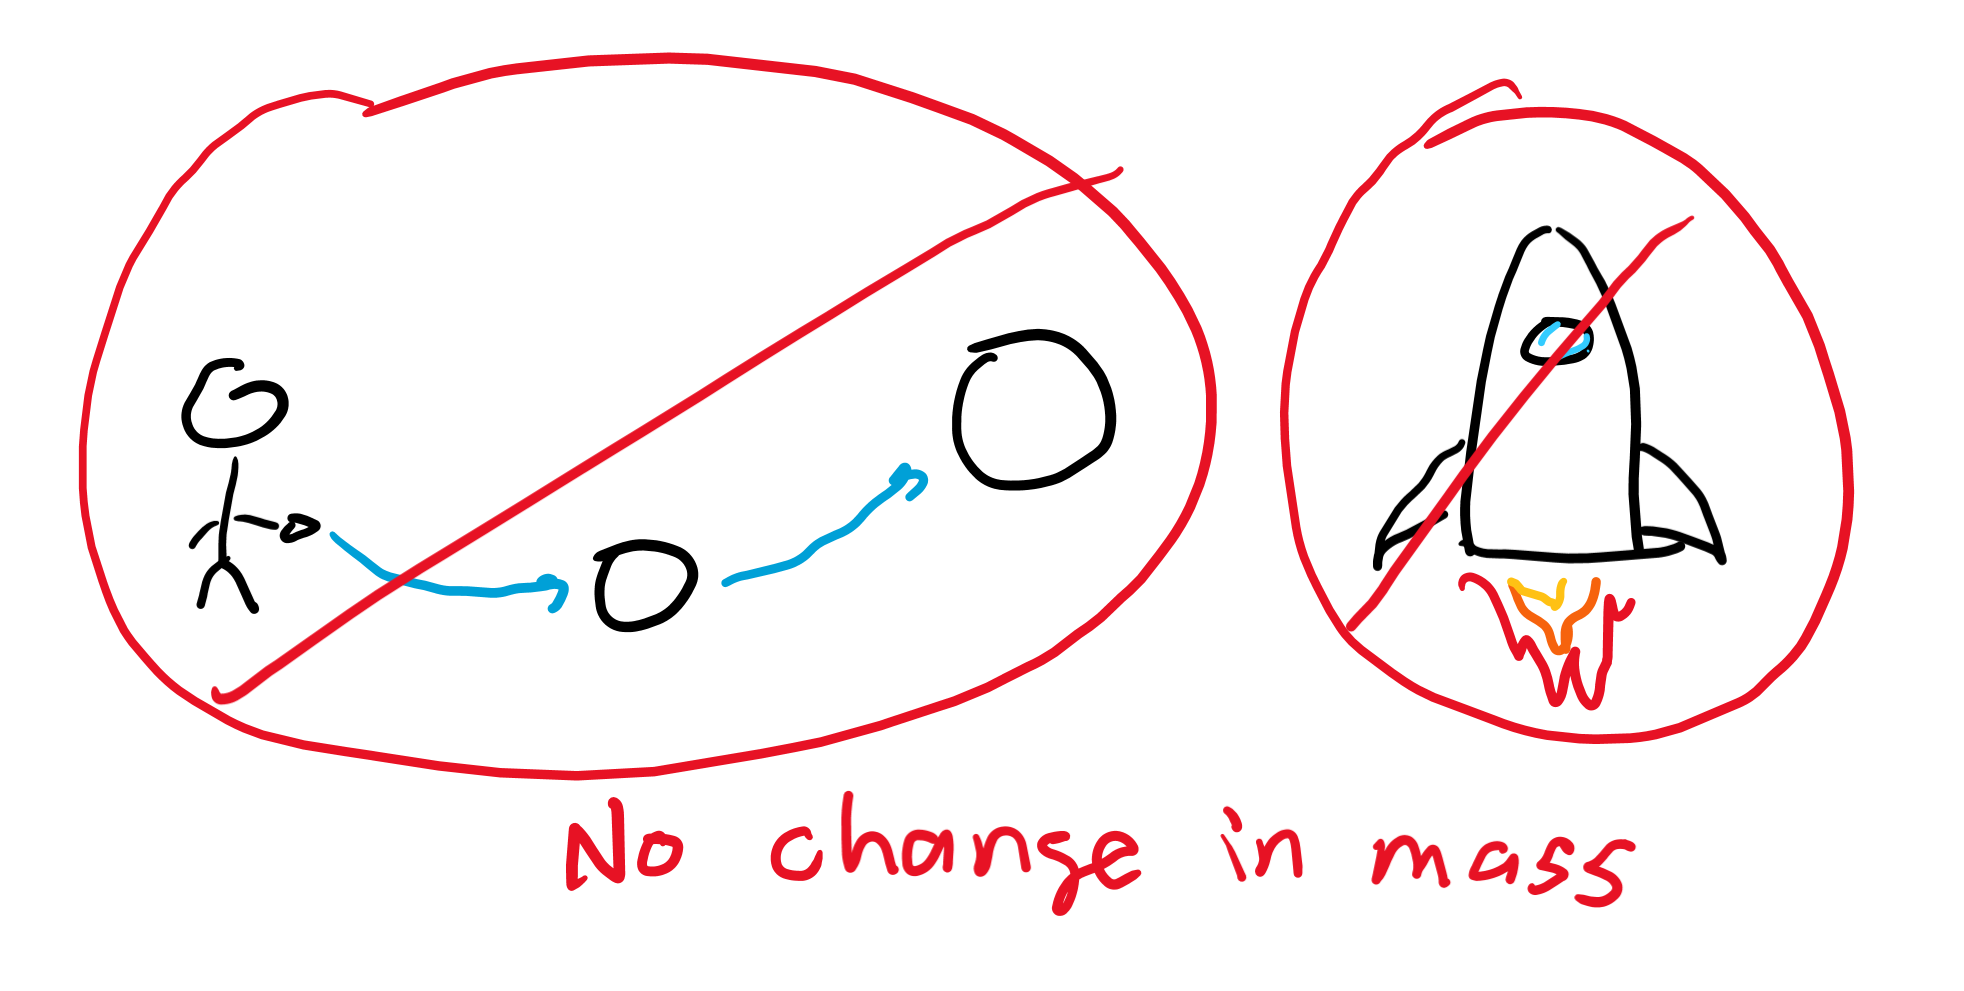 No change in mass